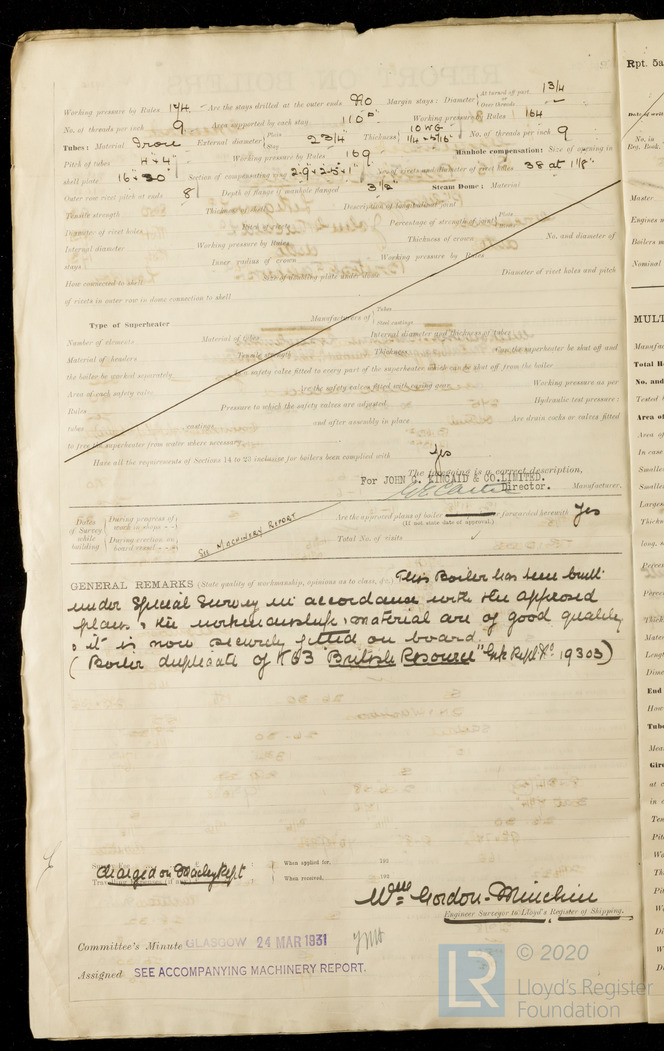 Working pressure by Rules 174 Are the stays drilled at the outer ends No Margin stays: Diameter { At turned off part, or Over threads 1 3/4
No. of threads per inch 9 Area supported by each stay 110 □" Working pressure by Rules 164
Tubes: Material Iron External diameter { Plain Stay 2 3/4" Thickness { 10 WG 1/4 & 5/16" No. of threads per inch 9
Pitch of tubes 4 x 4" Working pressure by Rules 169 Manhole compensation: Size of opening in
shell plate 16" x 20" Section of compensating ring 2·9 x 2·5 x 1" No. of rivets and diameter of rivet holes 38 at 1 1/8"
Outer row rivet pitch at ends 8" Depth of flange if manhole flanged 3 1/2" Steam Dome: Material
Tensile strength Thickness of shell Description of longitudinal joint
Diameter of rivet holes Percentage of strength of joint { Plate
Internal diameter Working pressure by Rules Thickness of crown No. and diameter of
stays Inner radius of crown Working pressure by Rules
How connected to shell Size of doubling plate under dome Diameter of rivet holes and pitch
of rivets in outer row in dome connection to shell
Type of Superheater Manufacturers of { Tubes Steel castings
Number of elements Material of tubes Internal diameter and thickness of tubes
Material of headers Tensile strength Thickness Can the superheater be shut off and
the boiler be worked separately Is a safety valve fitted to every part of the superheater which can be shut off from the boiler
Area of each safety valve Are the safety valves fitted with easing gear Working pressure as per
Rules Pressure to which the safety valves are adjusted Hydraulic test pressure:
tubes castings and after assembly in place Are drain cocks or valves fitted
to free the superheater from water where necessary
Have all the requirements of Sections 14 to 22 inclusive for boilers been complied with Yes
The foregoing is a correct description,
For JOHN G. KINCAID & CO. LIMITED.
Director. Manufacturer.
Dates of Survey while building { During progress of work in shops - - During erection on board vessel - - - See Machinery Report
Are the approved plans of boiler forwarded herewith Yes
(If not state date of approval.)
Total No. of visits
GENERAL REMARKS (State quality of workmanship, opinions as to class, &c. This Boiler has been built
under Special Survey in accordance with the approved
plans, the workmanship & material are of good quality
& it is now securely fitted on board.
(Boiler duplicate of No 63 "British Resource" Gk Rept No. 19303)
Charged on Machy Rept
When applied for, 193
Travelling Expenses (if any) When received, 193
Wm Gordon-Minchin
Engineer Surveyor to Lloyd's Register of Shipping.
Committee's Minute GLASGOW 24 MAR 1931
Assigned SEE ACCOMPANYING MACHINERY REPORT.
© 2020
LR
Lloyd's Register
Foundation
Rpt. 5a
Date of writ
No. in
Reg. Book.
Master
Engines
Boilers m
Nominal
MULT
Manufac
Total H
No. and
Tested
Area of
Area of
In case
Smalles
Smalles
Largest
Thickn
long. s
Percen